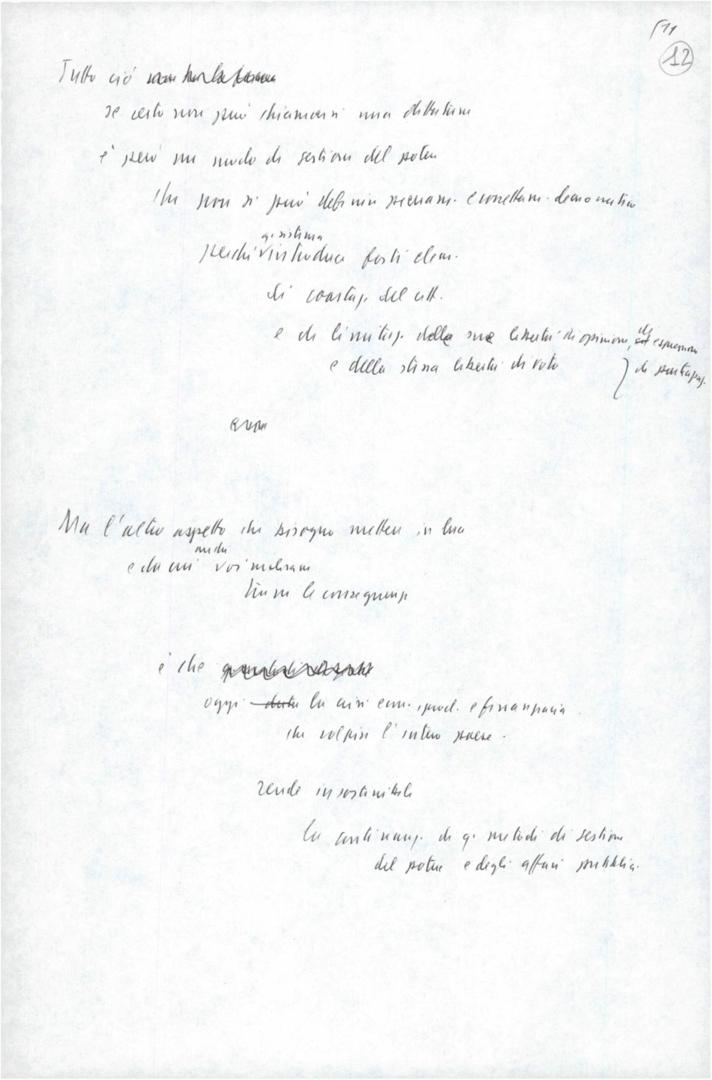 12
Tutto ciò
se certo non può chiamarsi una dittatura
è però un modo di gestione del potere
che non si può definire pienam. e correttam. democratico
q. sistema
perché introduce forti elem.
di coartaz. del citt.
e di limitaz. della sua libertà di opinione, di espressione
e della stessa libertà di voto } di partecipaz.
Ma l'altro aspetto che bisogna mettere in luce
anche
e da cui voi
trarre le conseguenze
è che
oggi la crisi econ. prod. e finanziaria
che colpisce l'intero paese.
rende insostenibile
la continuaz. di q. metodi di gestione
del potere e degli affari pubblici.